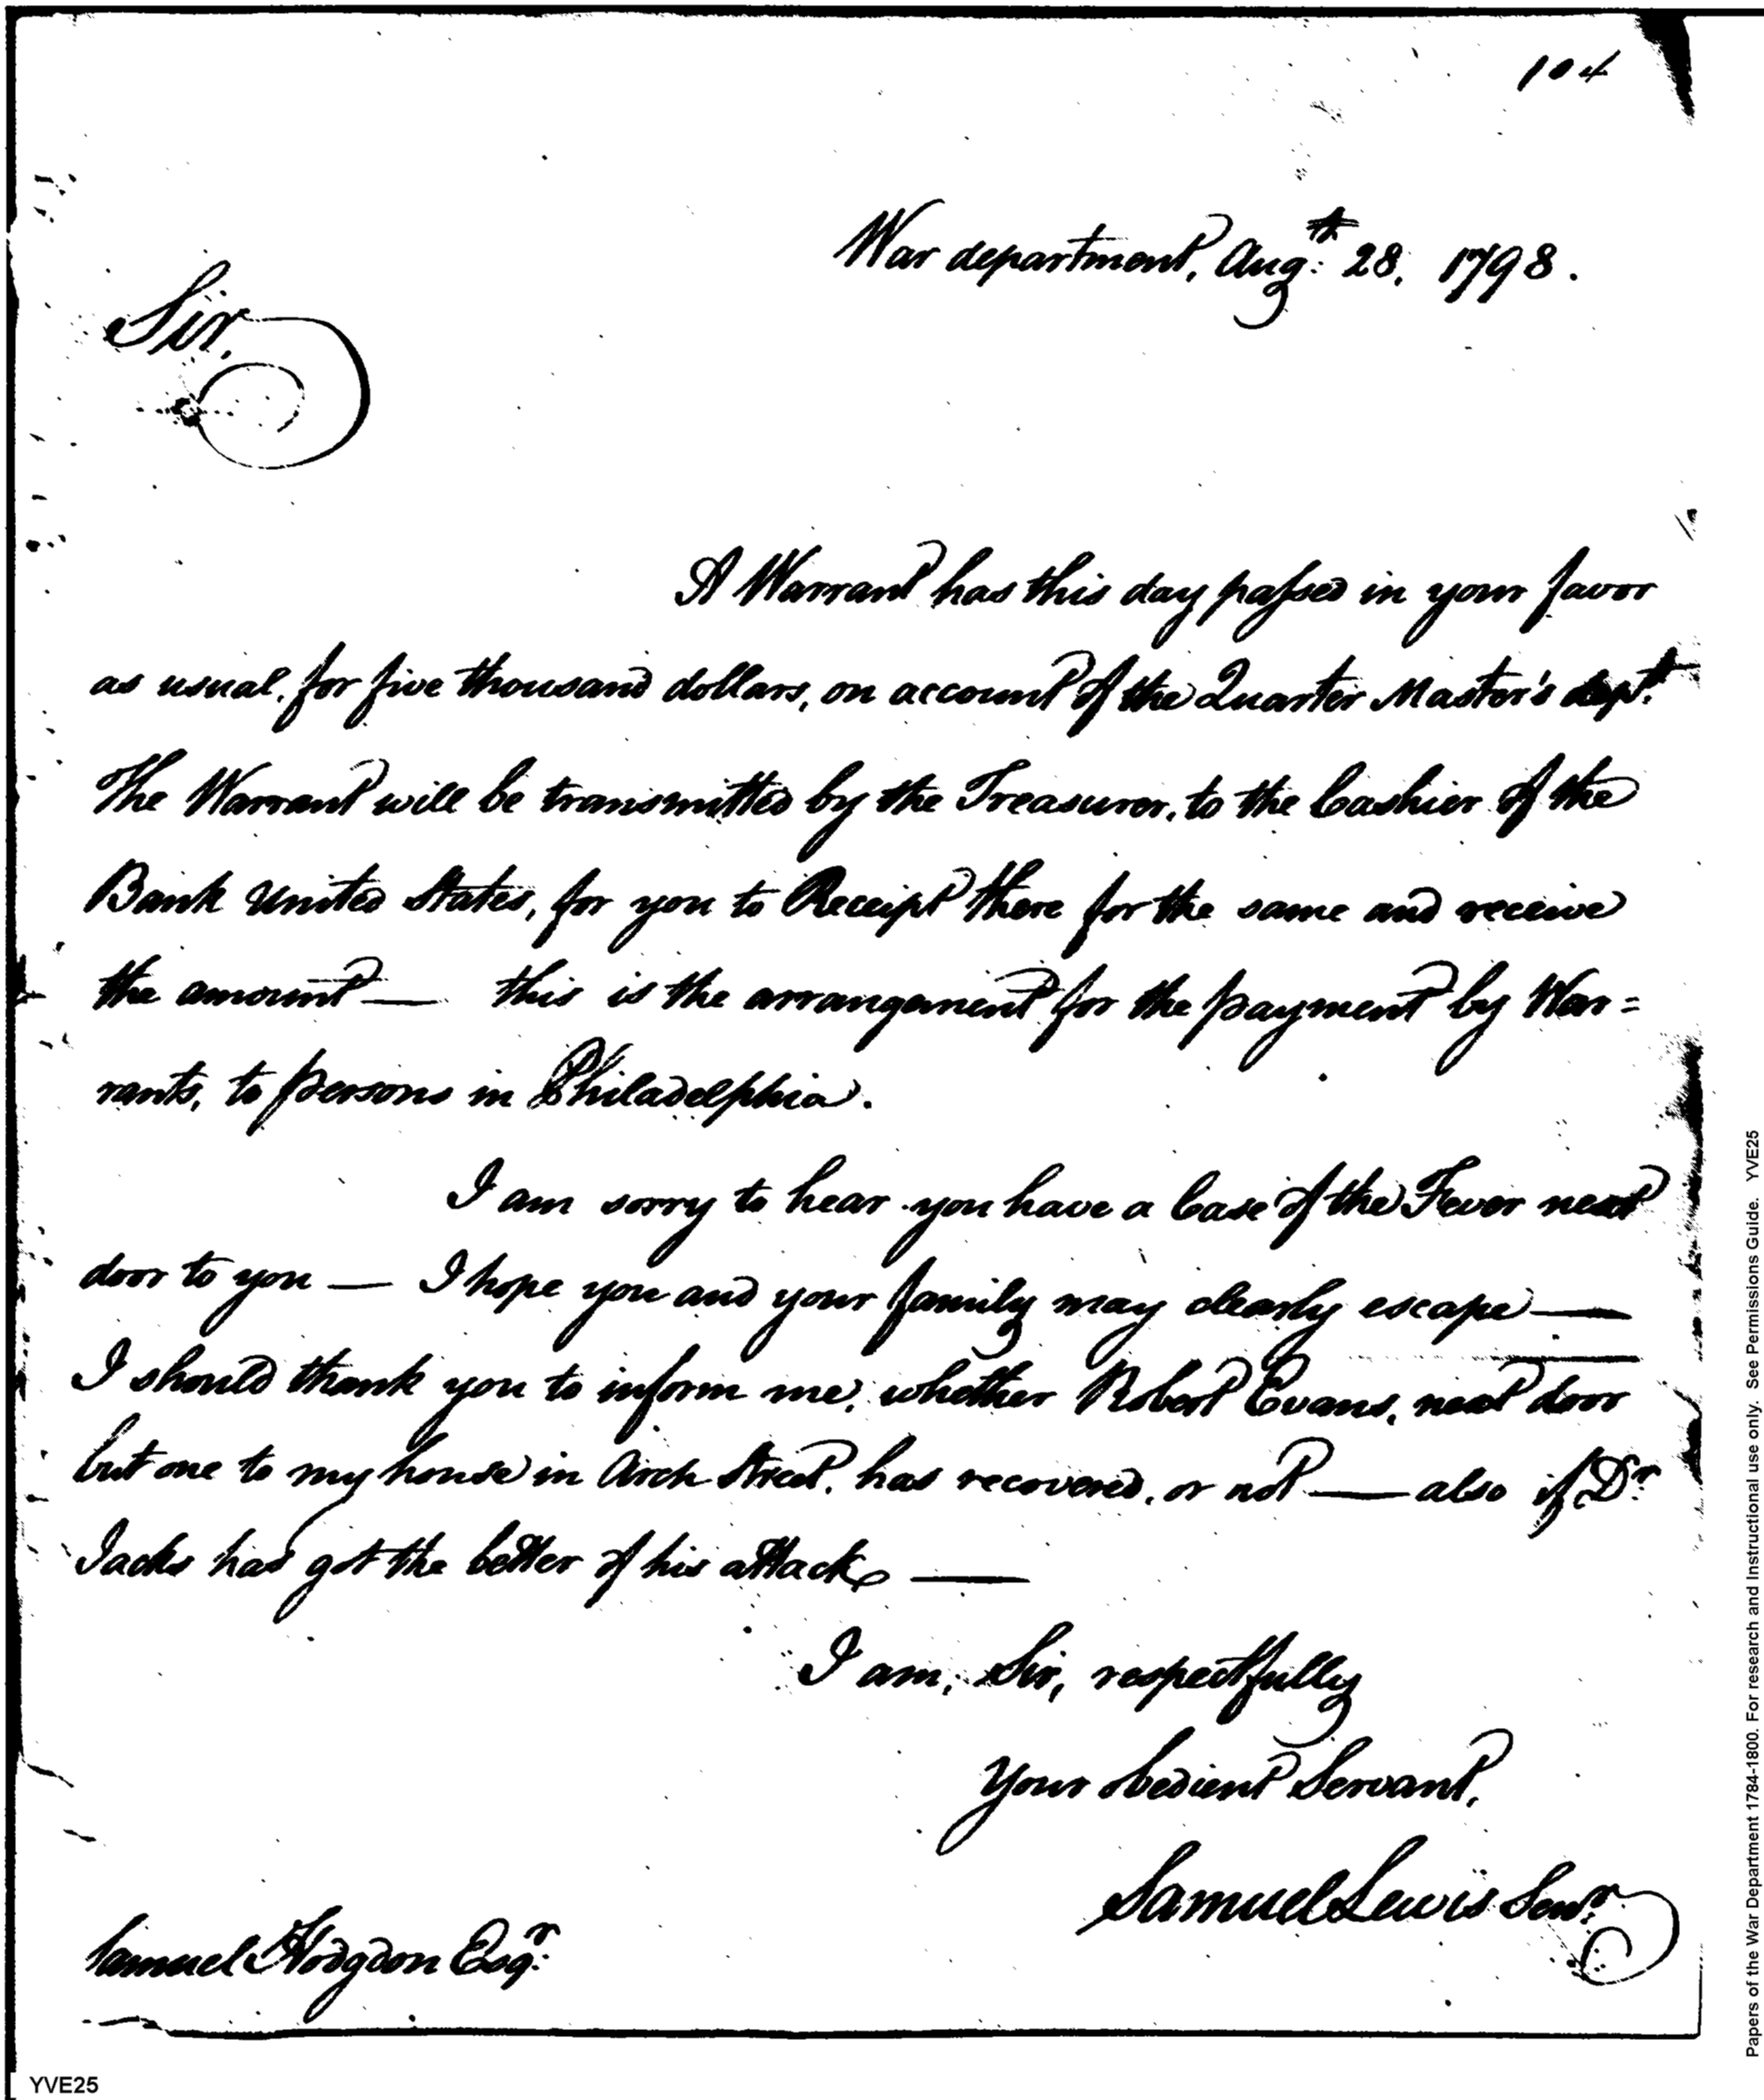 104
War department, Augt: 28, 1798.
Sir,
A Warrant has this day passed in your favor
as usual, for five thousand dollars, on account of the Quarter Master's dept.
The Warrant will be transmitted by the Treasurer, to the Cashier of the
Bank United States, for you to Receipt there for the same and receive
the amount — this is the arrangement for the payment by War=
rants, to persons in Philadelphia.
I am sorry to hear you have a Case of the Fever next
door to you — I hope you and your family may clearly escape —
I should thank you to inform me, whether Robert Evans, next door
but one to my house in Arch Street, has recovered, or not — also if Dr.
Jacks has got the better of his attack —
I am, Sir, respectfully
Your obedient Servant,
Samuel Lewis Senr.
Samuel Hodgdon Esqr:
YVE25
Papers of the War Department 1784-1800. For research and Instructional use only. See Permissions Guide. YVE25